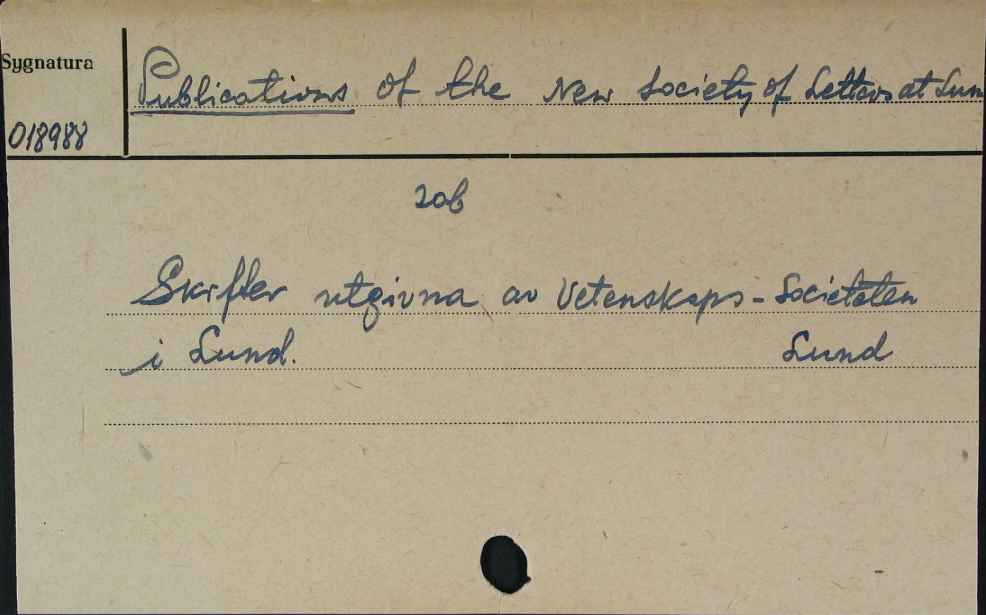 Sygnatura
Publications of the New Society of Letters at Lun
018988
zob
Skrifter utgivna av Vetenskaps-Societeten
i Lund. Lund